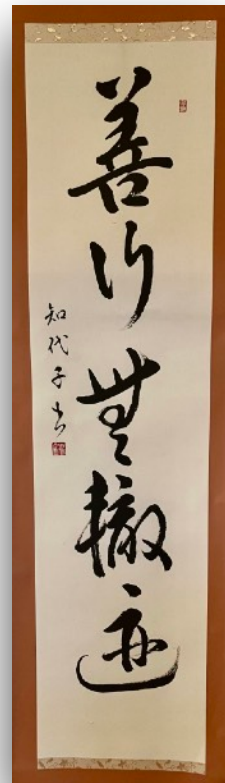 善行無轍迹
知代子書